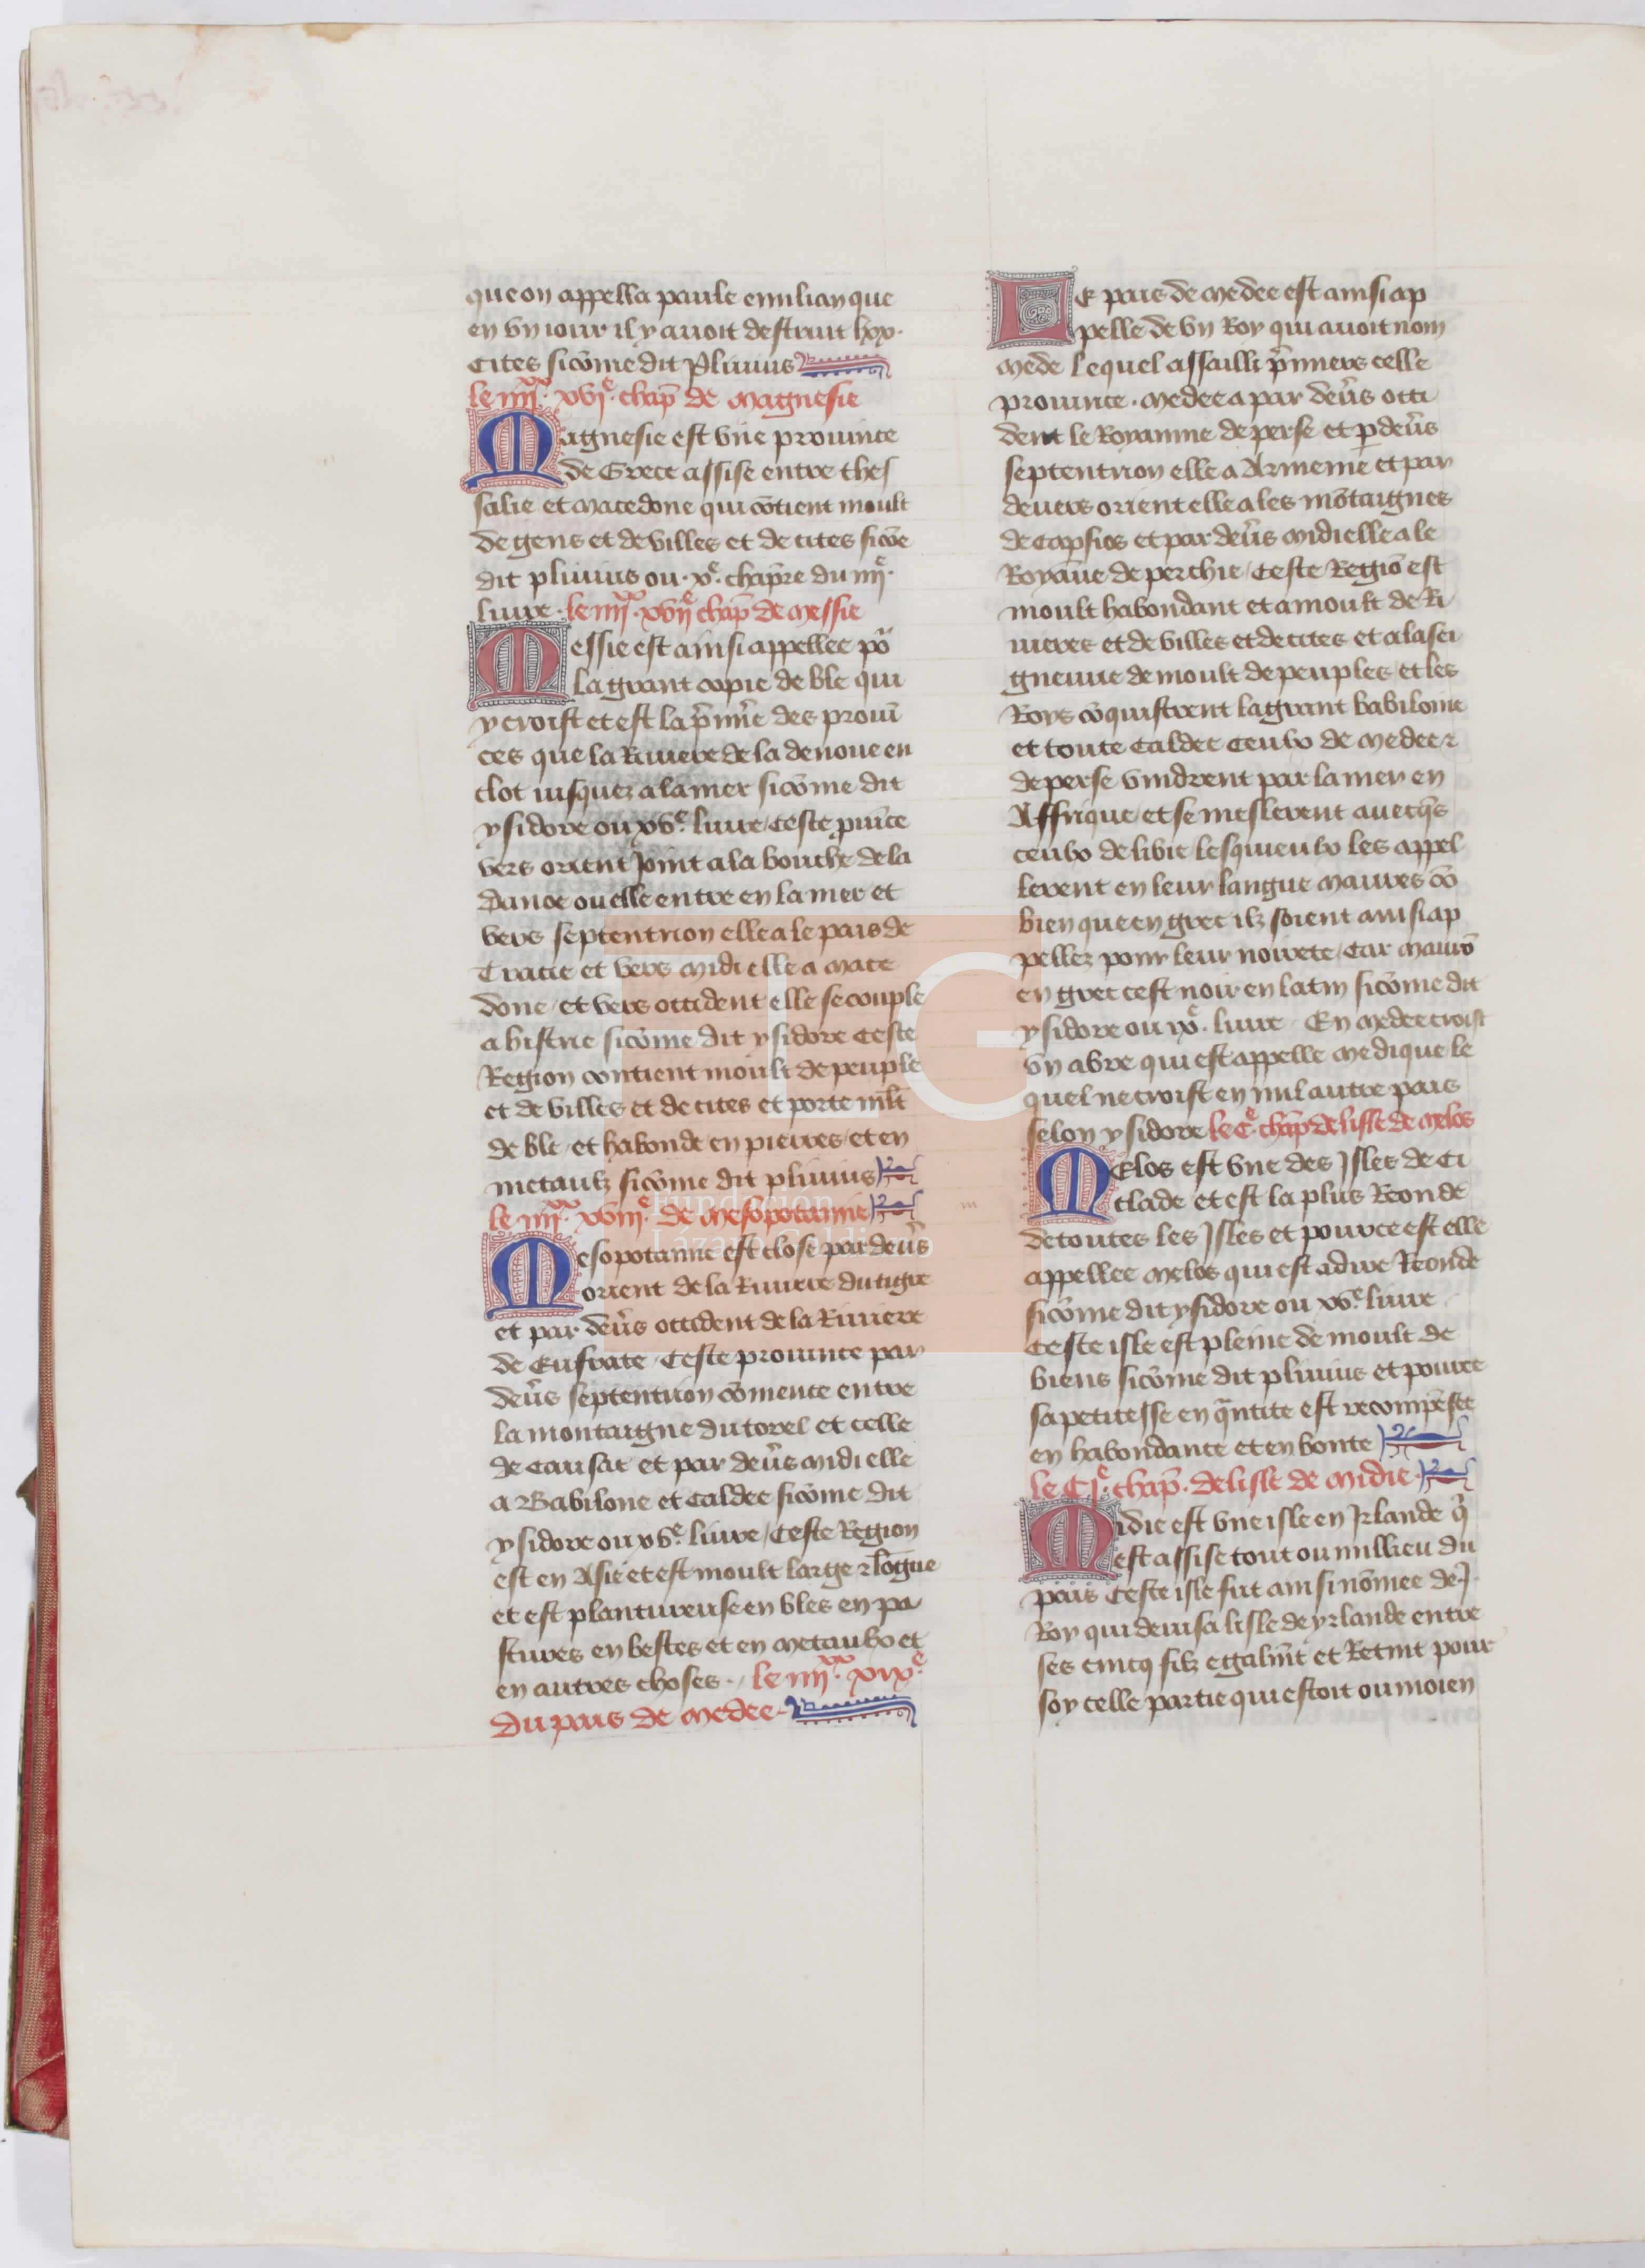 que on appella paule emilian que
en vn iour il y auoit destruit lxx.
cites sicõme dit Plinius
le iiii.xx xvi.e chap̃ de magnesie
Magnesie est vne prouince
de Grece assise entre thes
salie et macedone qui cõtient moult
de gens et de villes et de cites sicõe
dit plinius ou .ve. chap̃re du iiii.e
liure . le iiii.xx xvii.e chap̃ de messie
Messie est ainsi appellee po᷑
la grant copie de ble qui
y croist et est la p̃mr̃e des prouĩ
ces que la Riuiere de la denoue en
clot iusquez a la mer sicõme dit
ysidore ou xv.e liure / Ceste puĩce
vers orient Joint a la bouche de la
danoe ou elle entre en la mer et
vers septentrion elle a le pais de
Tracie et vers midi elle a mace
done / et vers occident elle se couple
a histrie sicõme dit ysidore Ceste
Region contient moult de peuple
et de villes et de cites et porte ml̃t
de ble / et habonde en pierres / et en
metaulz sicõme dit plinius
le iiii.xx xviii.e de mesopotamie
Mesopotamie est close par deũs
orient de la Riuiere du tigre
et par deũs occident de la Riuiere
de Eufrate / Ceste prouince par
deũs septentrion cõmence entre
la montaigne du torel et celle
de Causat et par deũs midi elle
a Babilone et Caldee sicõme dit
ysidore ou xv.e liure / Ceste Region
est en Asie et est moult large ⁊ lõgue
et est plantureuse en bles en pa
stures en bestes et en metaulx et
en autres choses . le iiii.xx xix.e
Du pais de medee
Le pais de medee est ainsi ap
pelle de vn Roy qui auoit nom
mede lequel assailli p̃miers celle
prouince . medee a par deũs occi
dent le Royaume de perse et p deũs
septentrion elle a Armenie et par
deuers orient elle a les mõtaignes
de Capsios et par deũs midi elle a le
Royaũe de perchie / Ceste Regiõ est
moult habondant et a moult de Ri
uieres et de villes et de cites et a la sei
gneurie de moult de peuples / et les
Roys cõquistrent la grant babiloine
et toute Caldee Ceulx de medee ⁊
de perse vindrent par la mer en
Affrique / et se meslerent auecq̃s
ceulx de libie lesquieulx les appel
lerent en leur langue maures cõ
bien que en grec ilz soient ainsi ap
pellez pour leur noirete / Car maurõ
en grec cest noir en latin sicõme dit
ysidore ou ix.e liure . En medee croist
vn abre qui est appelle medique le
quel ne croist en nul autre pais
selon ysidore le C.e chap̃ de lisle de melos
Melos est vne des Isles de Ci
clade et est la plus Reonde
de toutes les Isles et pource est elle
appellee melos qui est adire Reonde
sicõme dit ysidore ou xv.e liure
Ceste isle est pleine de moult de
biens sicõme dit plinius et pource
sa petitesse en q̃ntite est recompẽsee
en habondance et en bonte
le Ci.e chap̃ . de lisle de midie .
Midie est vne isle en Irlande q̃
est assise tout ou millieu du
pais Ceste isle fut ainsi nõmee de J
Roy qui deuisa lisle de yrlande entre
ses cincq filz egalmt̃ et Retint pour
soy celle partie qui estoit ou moien
FLG
Fundación
Lázaro Galdiano